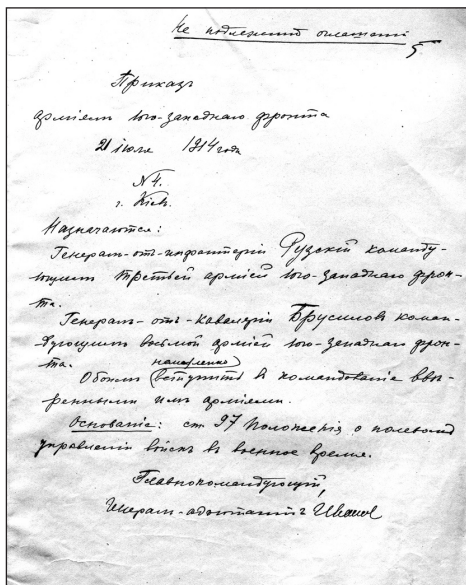 Не подлежитъ оглашенію
5
Приказъ
арміямъ Юго-западнаго фронта
21 іюля 1914 года
№ 4.
г. Кіевъ.
Назначаются:
Генералъ-отъ-инфантеріи Рузскій команду-
ющимъ третьей арміей Юго-западнаго фрон-
та.
Генералъ-отъ-кавалеріи Брусиловъ коман-
дующимъ восьмой арміей Юго-западнаго фрон-
та.
немедленно
Обоимъ вступить въ командованіе ввѣ-
ренными имъ арміями.
Основаніе: ст. 97 Положенія о полевомъ
управленіи войскъ въ военное время.
Главнокомандующій,
Генералъ-адъютантъ Ивановъ